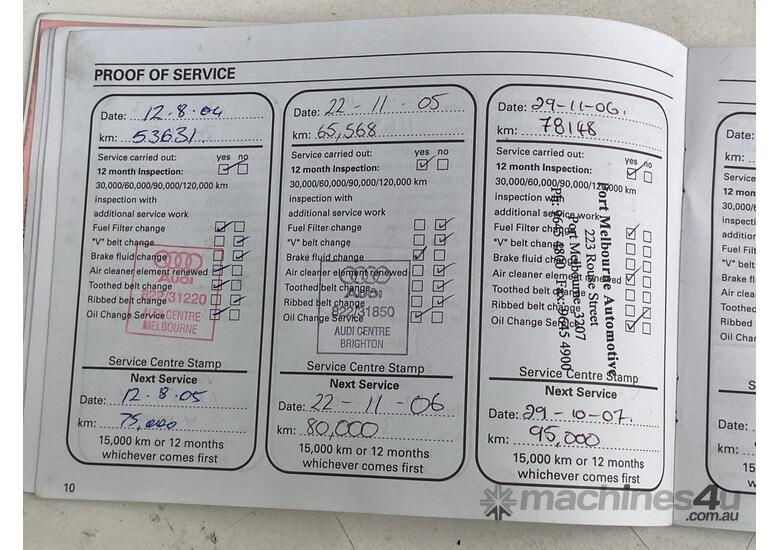 PROOF OF SERVICE
Date: 12.8.04
km: 53631
Service carried out: yes no
12 month Inspection:
30,000/60,000/90,000/120,000 km
inspection with
additional service work
Fuel Filter change
"V" belt change
Brake fluid change
Air cleaner element renewed
Toothed belt change
Ribbed belt change
Oil Change Service
Audi
822/31220
AUDI CENTRE
MELBOURNE
Service Centre Stamp
Next Service
Date: 12.8.05
km: 75,000
15,000 km or 12 months
whichever comes first
Date: 22-11-05
km: 65,568
Service carried out: yes no
12 month Inspection:
30,000/60,000/90,000/120,000 km
inspection with
additional service work
Fuel Filter change
"V" belt change
Brake fluid change
Air cleaner element renewed
Toothed belt change
Ribbed belt change
Oil Change Service
Audi
822/31850
AUDI CENTRE
BRIGHTON
Service Centre Stamp
Next Service
Date: 22-11-06
km: 80,000
15,000 km or 12 months
whichever comes first
Date: 29-11-06.
km: 78148
Service carried out: yes no
12 month Inspection:
30,000/60,000/90,000/120,000 km
inspection with
additional service work
Fuel Filter change
"V" belt change
Brake fluid change
Air cleaner element renewed
Toothed belt change
Ribbed belt change
Oil Change Service
Port Melbourne Automotive
223 Rouse Street
Port Melbourne 3207
Ph: 9645 4800 Fax: 9645 4900
Service Centre Stamp
Next Service
Date: 29-10-07.
km: 95,000
15,000 km or 12 months
whichever comes first
10
Date:
km:
Service
12 mon
30,000/6
inspecti
addition
Fuel Filt
"V" belt
Brake fl
Air clea
Toothed
Ribbed
Oil Chan
Date:
km:
15,00
wh
machines4u
.com.au